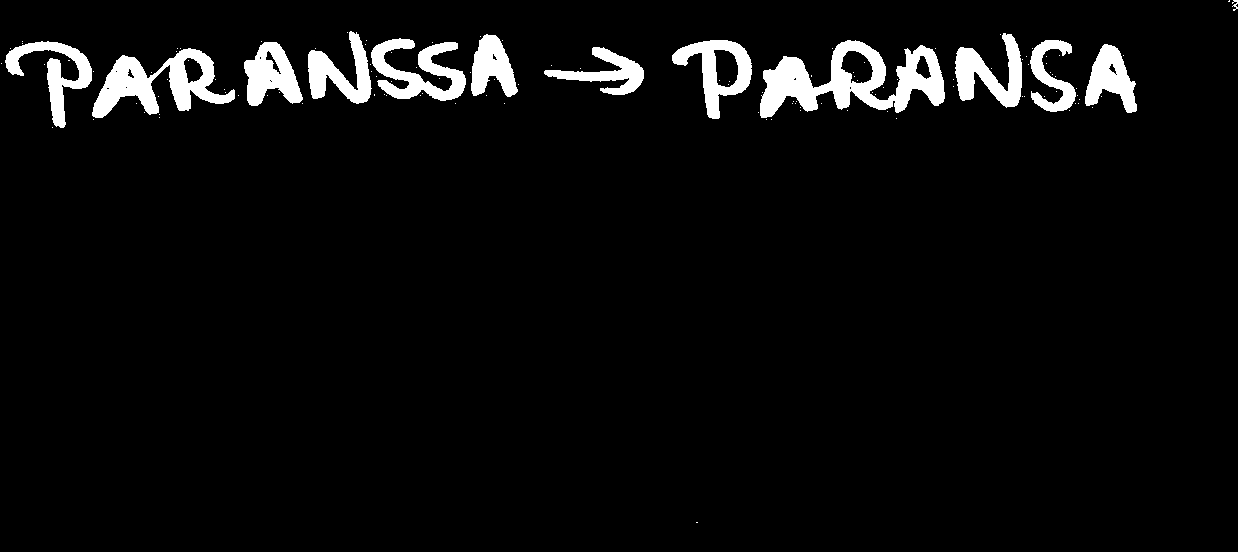 PARANSSA → PARANSA